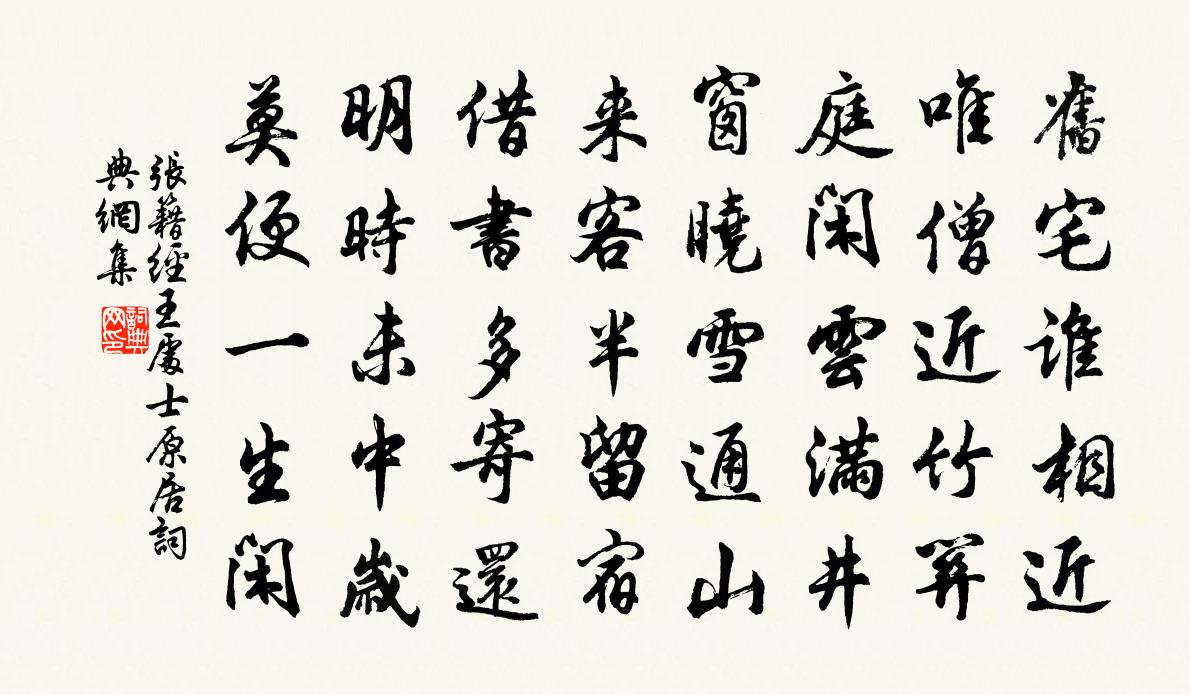 舊宅誰相近
唯僧近竹關
庭閑雲滿井
窗曉雪通山
来客半留宿
借書多寄還
明時未中歲
莫便一生閑
張籍經王處士原居詞
典網集
詞典網印